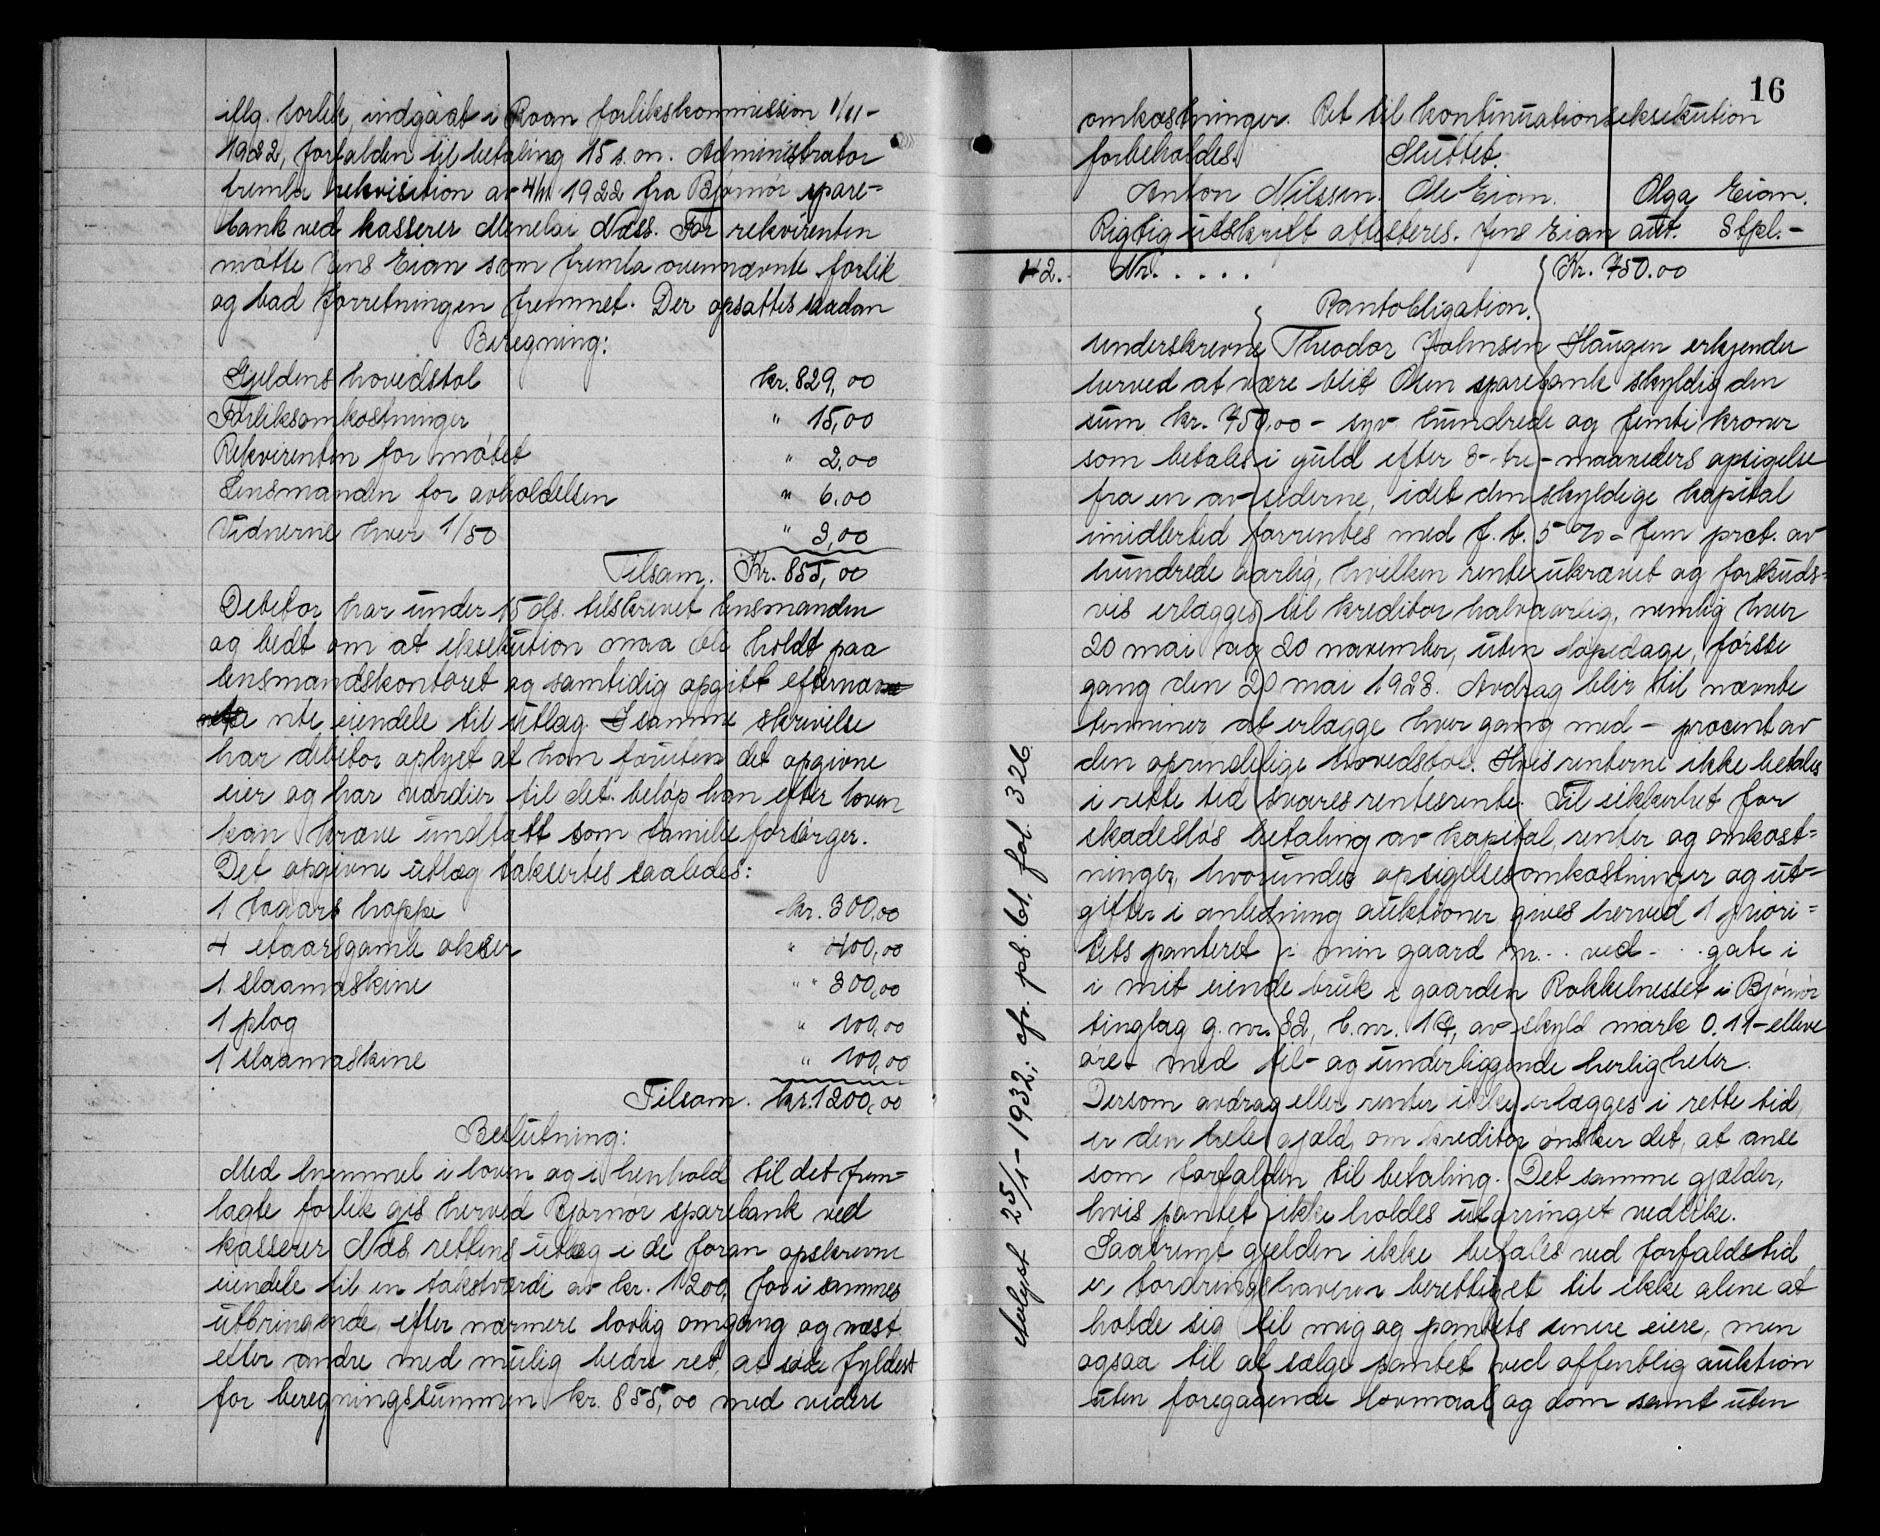 illg. forlik, indgåat i Roan forlikskommission 1/11-
1922, forfalden til betaling 15 s. m. Administrator
fremla rekvisition av 4/11 1922 fra Bjørnør spare-
bank ved kasserer Menelai Næss. For rekvirenten
møtte Jens Eian som fremla ovennævnte forlik
og bad forretningen fremmet. Der opsattes saadan
Beregning:
Gjeldens hovedstol kr. 829,00
Forliksomkostninger " 15,00
Rekvirenten for møtet " 2,00
Lensmanden for avholdelsen " 6,00
Vidnerne hver 1/50 " 3,00
Tilsam. Kr. 855,00
Debitor har under 15 ds. tilskrevet lensmanden
og bedt om at eksekution maa bli holdt paa
lensmandskontoret og samtidig opgitt efternæv
nte eiendele til utlæg. I samme skrivelse
har debitor oplyst at han foruten det opgivne
eier og har værdier til det beløp han efter loven
kan kræve undtatt som familieforsørger.
Det opgivne utlæg taksertes saaledes:
1 toaars hoppe kr. 300,00
4 etaarsgamle okser " 400,00
1 slaamaskine " " 300,00
1 plog " 100,00
1 slaamaskine " 100,00
Tilsam. kr. 1200,00
Beslutning:
Med hjemmel i loven og i henhold til det frem-
lagte forlik gis herved Bjørnør sparebank ved
kasserer Næs rettens utlæg i de foran opskrevne
eiendele til en takstværdi av kr. 1200, for i sammes
utbringende, efter nærmere lovlig omgang og næst
efter andre med mulig bedre ret, at søke fyldest
for beregningssummen kr. 855,00 med videre
16
omkostninger. Ret til kontinuationseksekution
forbeholdes. Sluttet.
Anton Nilssen. Ole Eian. Olga Eian.
Rigtig utskrift attesteres. Jens Eian aut. Stpl.-
42. Nr. . . . . Kr. 750.00
Pantobligation.
Underskrevne Theodor Johnsen Haugen erkjender
herved at være blit Osen sparebank skyldig den
sum kr. 750,00 - syv hundrede og femti kroner
som betales i guld efter 3 - tre - maaneders opsigelse
fra en av siderne, idet den skyldige kapital
imidlertid forrentes med f. t. 5 % - fem prct. av
hundrede aarlig, hvilken rente ukrævet og forskuds-
vis erlægges til kreditor halvaarlig, nemlig hver
20 mai og 20 november, uten løpedage, første
gang den 20 mai 1923. Avdrag blir til nævnte
terminer at erlægge hver gang med - procent av
den oprindelige hovedstol. Hvis renterne ikke betales
i rette tid svares rentesrente. Til sikkerhet for
skadesløs betaling av kapital, renter og omkost-
ninger, hvorunder opsigelsesomkostninger og ut-
gifter i anledning auktioner gives herved 1 priori-
tets panteret i min gaard nr. . . ved . . gate i
i mit eiende bruk i gaarden Rokkelnesset i Bjørnør
tinglag g. nr. 32, b. nr. 14, av skyld mark 0.11 - elleve
øre - med til- og underliggende herligheter.
Dersom avdrag eller renter ikke erlægges i rette tid,
er den hele gjæld, om kreditor ønsker det, at anse
som forfalden til betaling. Det samme gjælder,
hvis pantet ikke holdes utarringet vedlike.
Saafremt gjælden ikke betales ved forfaldstid
er fordringshaveren berettiget til ikke alene at
holde sig til mig og pantets senere eiere, men
ogsaa til at sælge pantet ved offentlig auktion
uten foregaaende lovmaal og dom samt uten
Avlyst 25/1-1932; cfr. pb. bl. fol. 326.